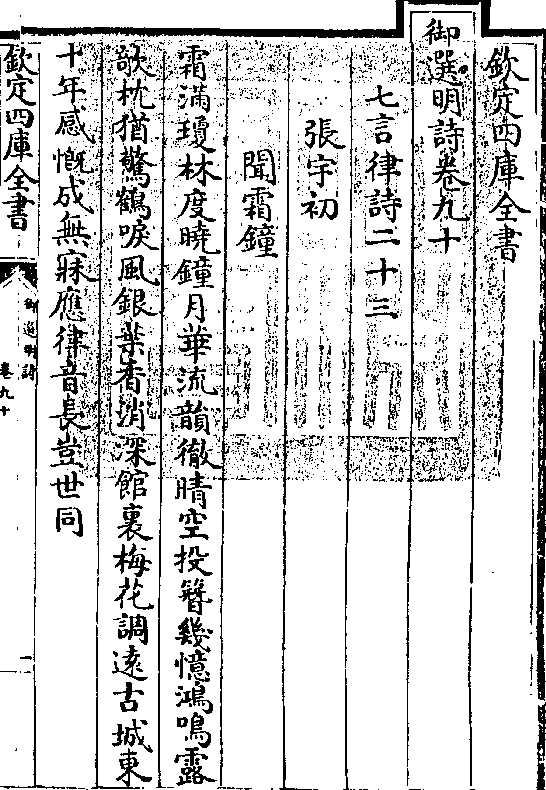 欽定四庫全書
御選明詩卷九十
七言律詩二十三
張宇初
聞霜鐘
霜滿瓊林度曉鐘月華流韻徹晴空投簪幾憶鴻鳴露
欹枕猶驚鶴唳風銀葉香消深館裏梅花調遠古城東
十年感慨成無寐應律音長豈世同
欽定四庫全書
御選明詩
卷九十
一